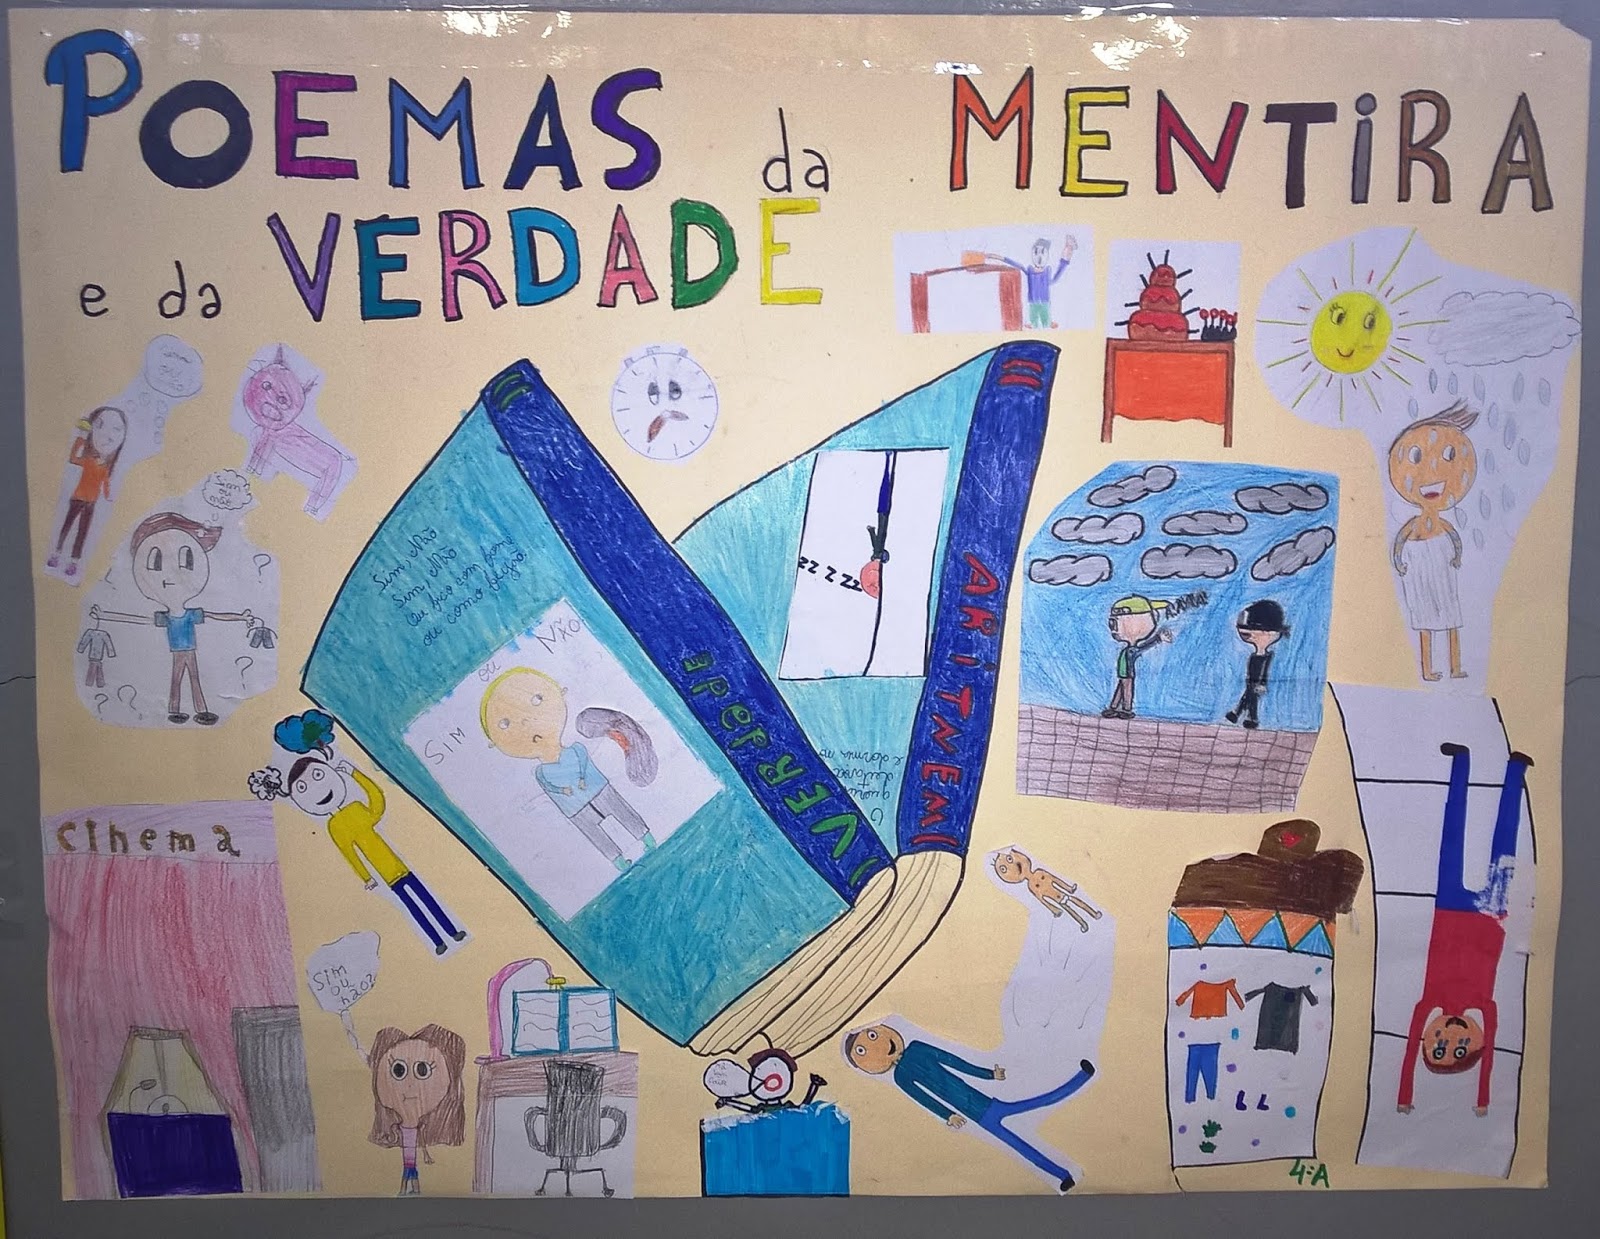 POEMAS da MENTIRA
e da VERDADE
Sim
ou
não
Sim, Não
Sim, Não
Eu fico com fome
ou como feijão.
SIM ou NÃO
VERDADE
MENTIRA
zzzzz
e dormir no
cinema
Sim
ou
não?
4ºA